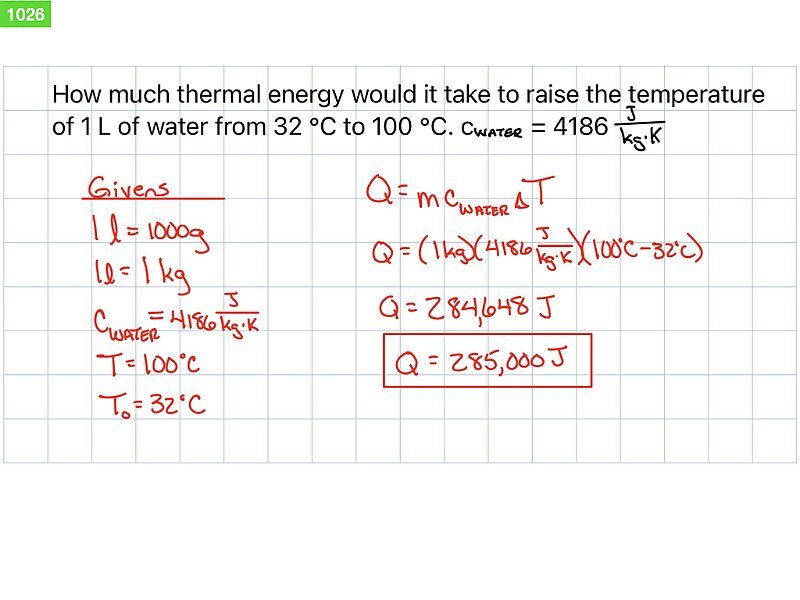 1026
How much thermal energy would it take to raise the temperature
of 1 L of water from 32 °C to 100 °C. cWATER = 4186 J/kg·K
Givens
1 l = 1000g
1l = 1 kg
CWATER = 4186 J/kg·K
T = 100°C
T₀ = 32°C
Q = mCWATER ΔT
Q = (1kg)(4186 J/kg·K)(100°C-32°C)
Q = 284,648 J
Q = 285,000 J